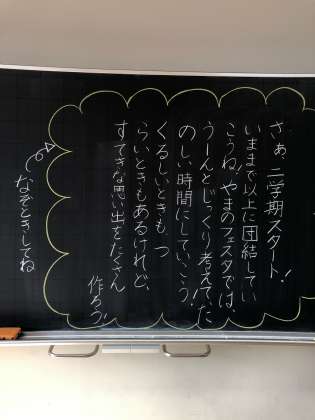 さぁ、二学期スタート！
いままで以上に団結してい
こうね！やまのフェスタでは、
うーんとじっくり考えて、た
のしい時間にしていこう！
くるしいときも つ
らいときもあるけれど、
すてきな思い出をたくさん
作ろう！
なぞときしてね